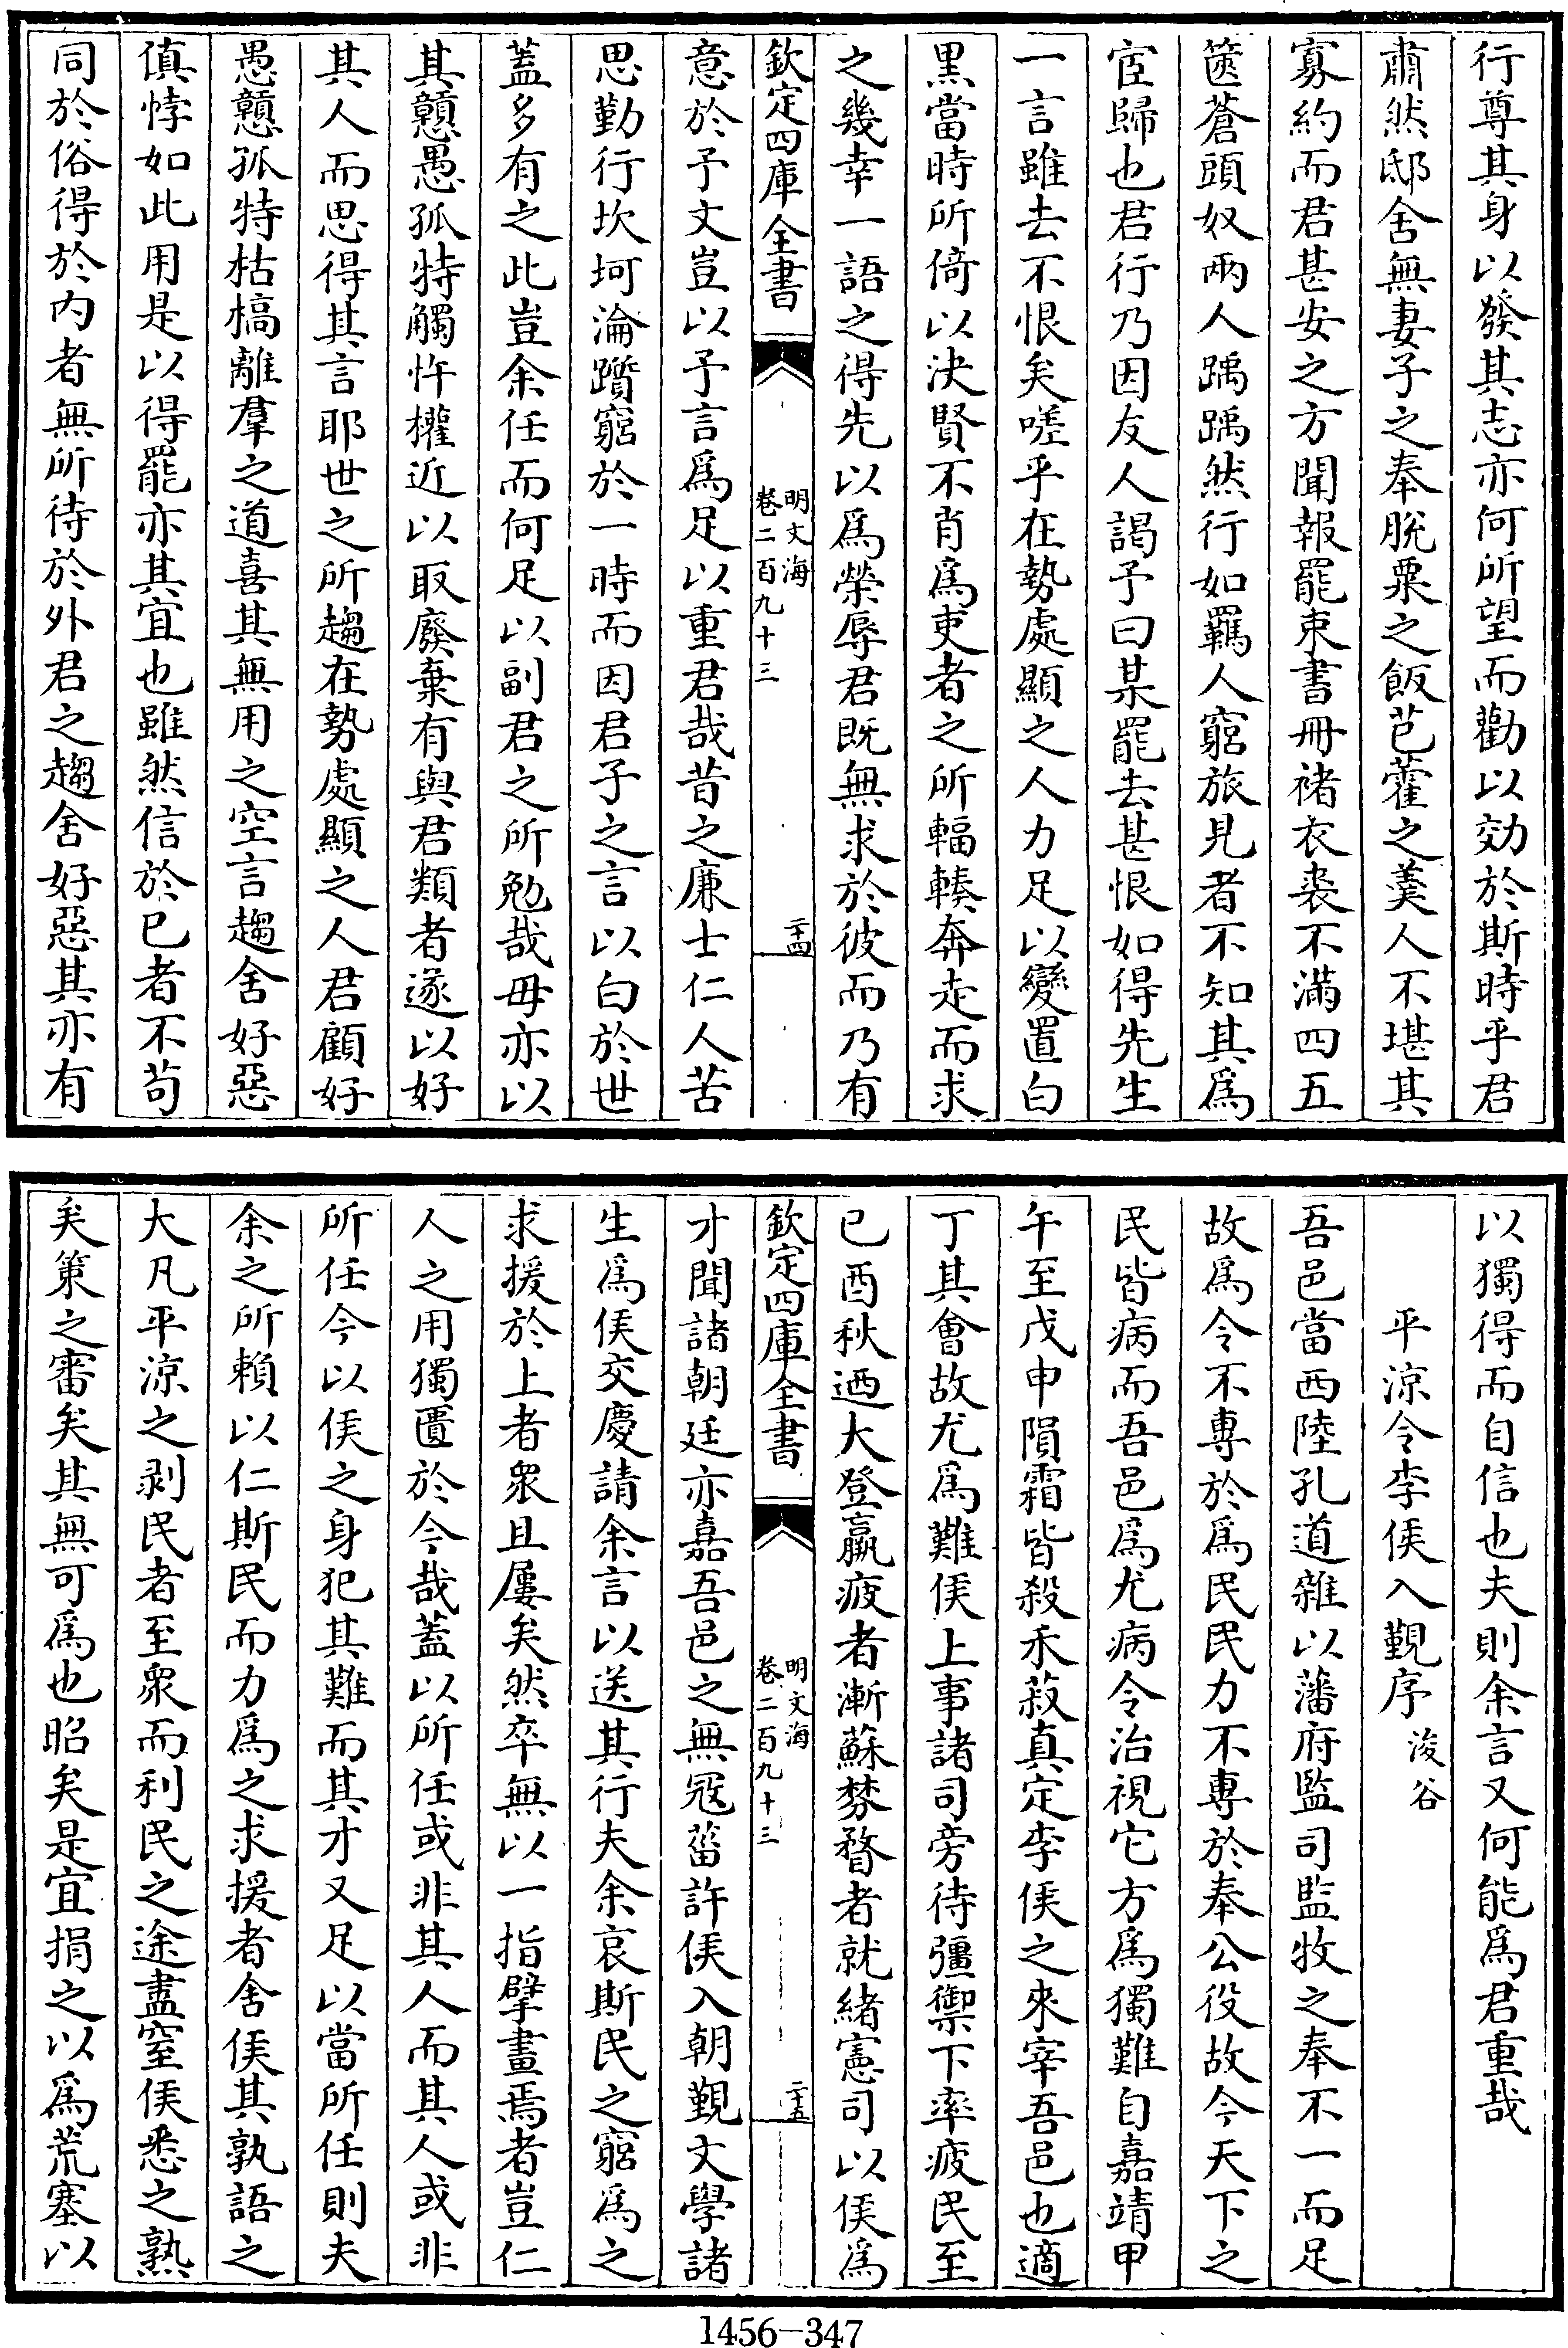 行尊其身以發其志亦何所望而勸以効於斯時乎君
肅然邸舍無妻子之奉脫粟之飯芑藿之羮人不堪其
寡約而君甚安之方聞報罷束書冊褚衣裘不滿四五
篋蒼頭奴兩人踽踽然行如羈人窮旅見者不知其為
宦歸也君行乃因友人謁予曰某罷去甚恨如得先生
一言雖去不恨矣嗟乎在勢處顯之人力足以變置白
黒當時所倚以決賢不肖為吏者之所輻輳奔走而求
之幾幸一語之得先以為榮辱君既無求於彼而乃有
欽定四庫全書
明文海
卷二百九十三
二十四
意於予文豈以予言為足以重君哉昔之廉士仁人苦
思勤行坎坷淪躓窮於一時而因君子之言以白於世
蓋多有之此豈余任而何足以副君之所勉哉毋亦以
其戇愚孤特觸忤權近以取廢棄有與君類者遂以好
其人而思得其言耶世之所趨在勢處顯之人君顧好
愚戇孤特枯槁離羣之道喜其無用之空言趨舍好惡
傎悖如此用是以得罷亦其宜也雖然信於已者不茍
同於俗得於内者無所待於外君之趨舍好惡其亦有
以獨得而自信也夫則余言又何能為君重哉
平涼令李侯入覲序 浚谷
吾邑當西陸孔道雜以藩府監司監牧之奉不一而足
故為令不專於為民民力不專於奉公役故今天下之
民皆病而吾邑為尤病令治視它方為獨難自嘉靖甲
午至戊申隕霜皆殺禾菽真定李侯之來宰吾邑也適
丁其會故尤為難侯上事諸司旁待彊禦下率疲民至
已酉秋迺大登羸疲者漸蘇棼瞀者就緒憲司以侯為
欽定四庫全書
明文海
卷二百九十三
二十五
才聞諸朝廷亦嘉吾邑之無冦菑許侯入朝覲文學諸
生為侯交慶請余言以送其行夫余哀斯民之窮為之
求援於上者衆且屢矣然卒無以一指擘畫焉者豈仁
人之用獨匱於今哉蓋以所任或非其人而其人或非
所任今以侯之身犯其難而其才又足以當所任則夫
余之所賴以仁斯民而力為之求援者舍侯其孰語之
大凡平涼之剥民者至衆而利民之途盡窒侯悉之熟
矣策之審矣其無可為也昭矣是宜捐之以為荒塞以
1456-347